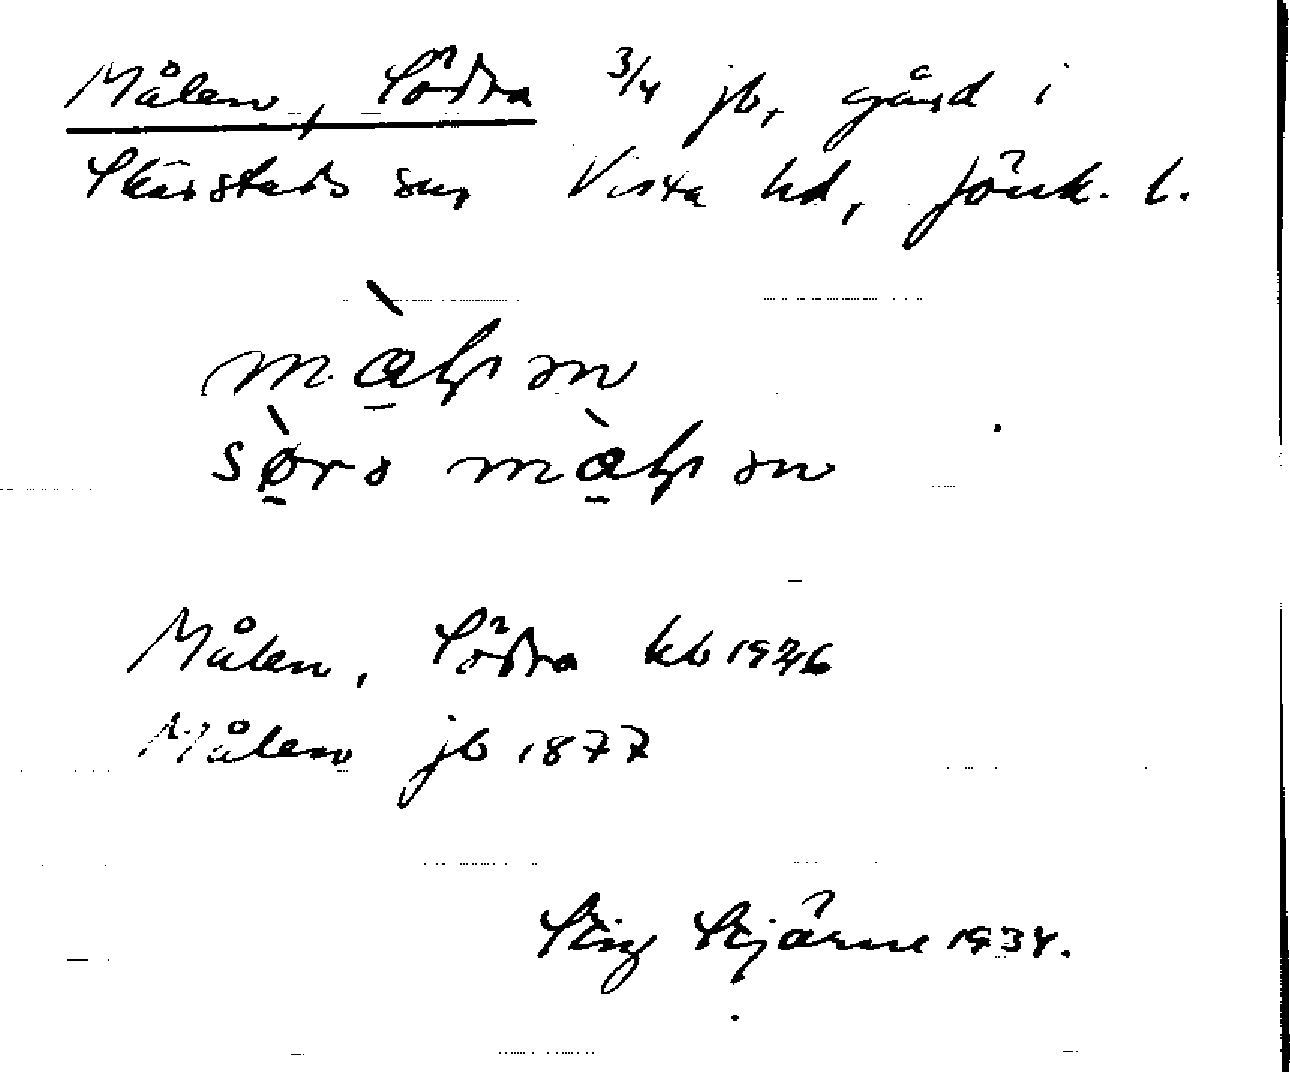 Målen, Södra 3/4 jb, gård i
Skärstads sn, Vista hd, Jönk. l.
Målen, Södra kb 1926
Målen jb 1877
Stig Stjärne 1934.